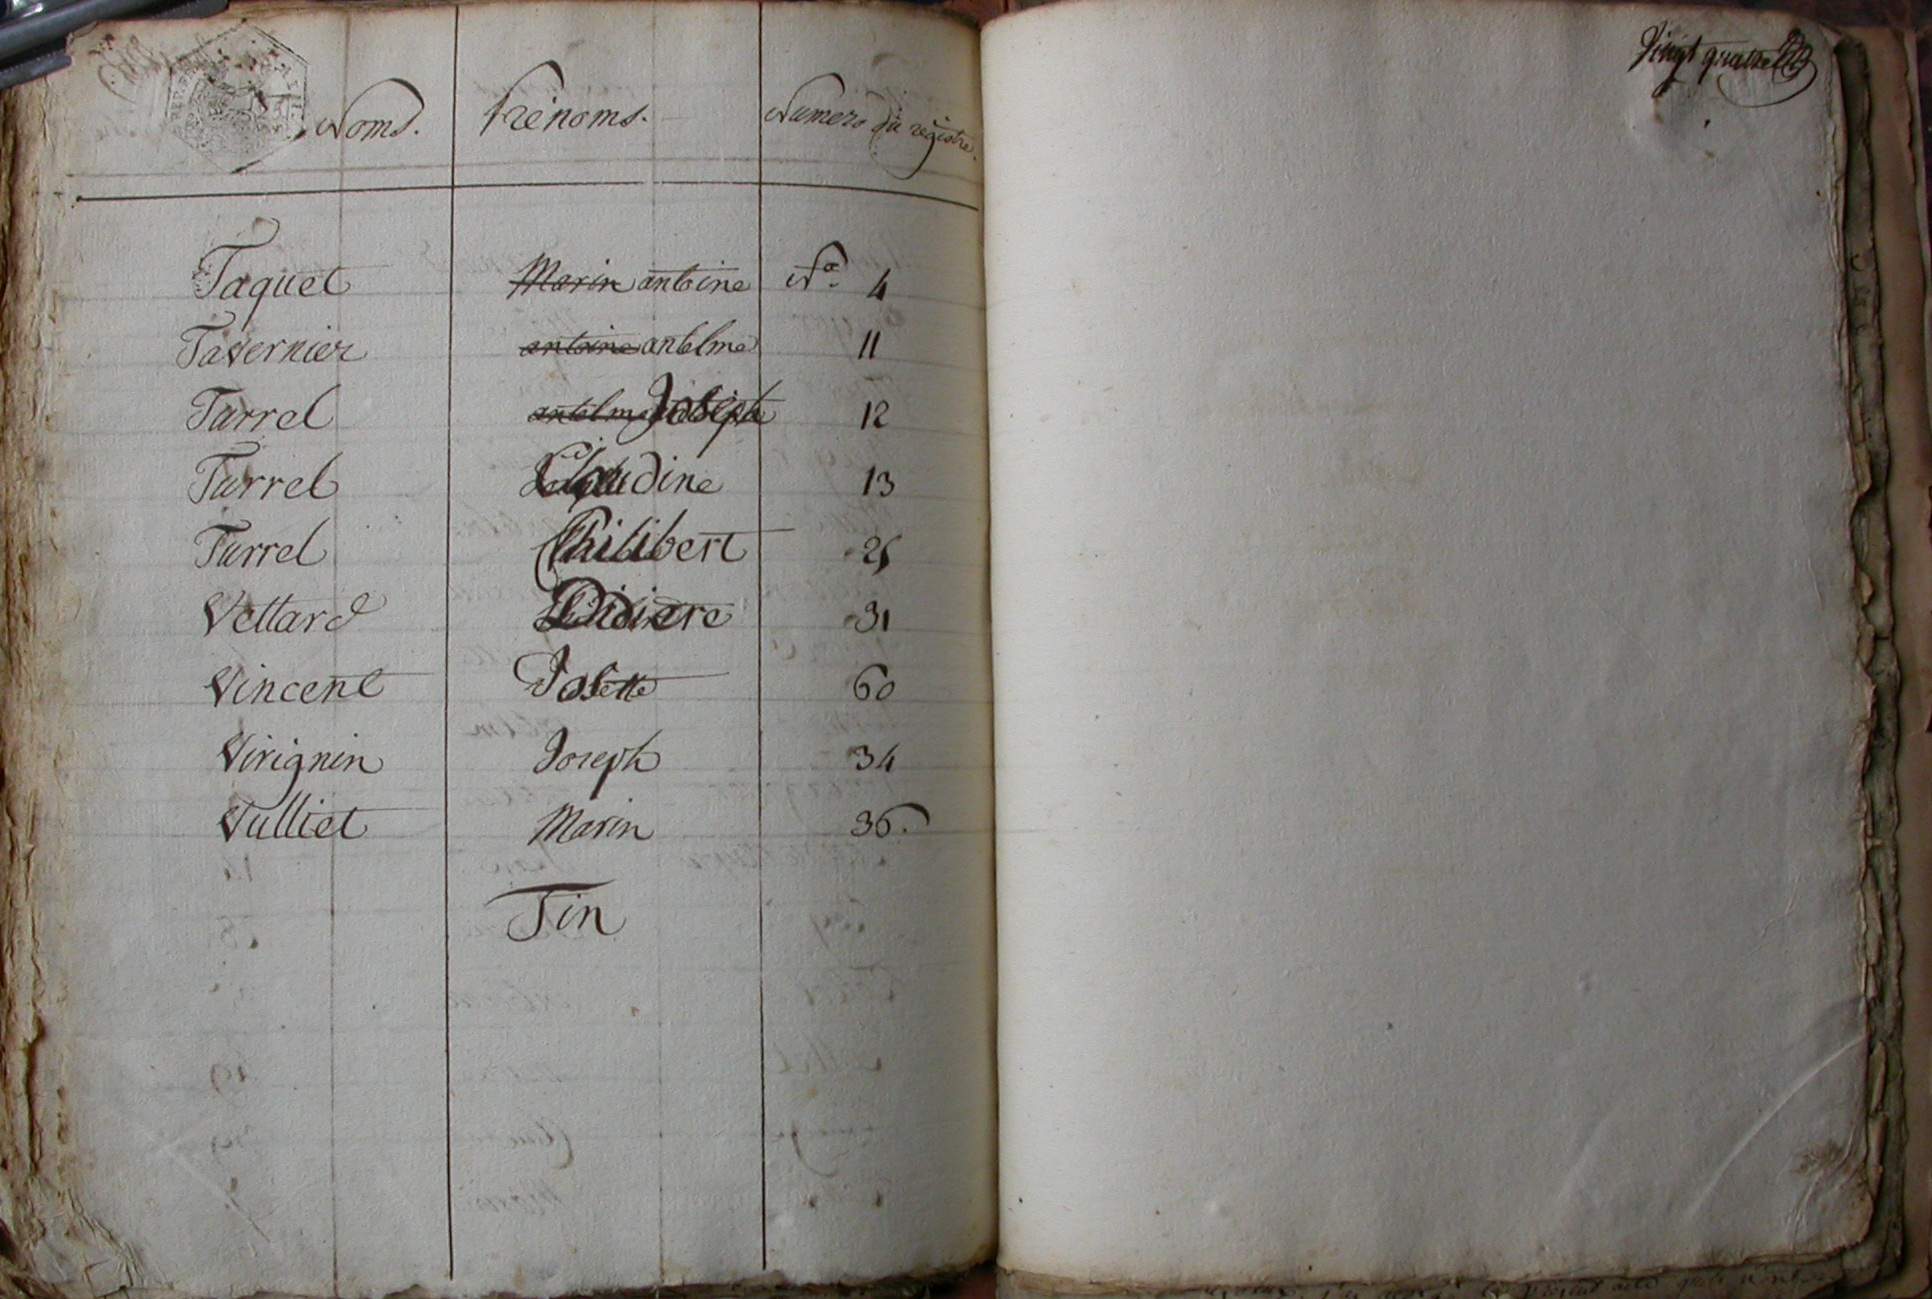 Noms. Prénoms. Numero du registre.
Taquet Marin antoine No. 4
Tavernier antoine antelme 11
Turrel antelme Joseph 12
Turrel Claudine 13
Turrel Philibert 25
Vettard Didiere 31
Vincent Josette 60
Virignin Joseph 34
Vulliet Marin 36.
Fin
Vingt quatre